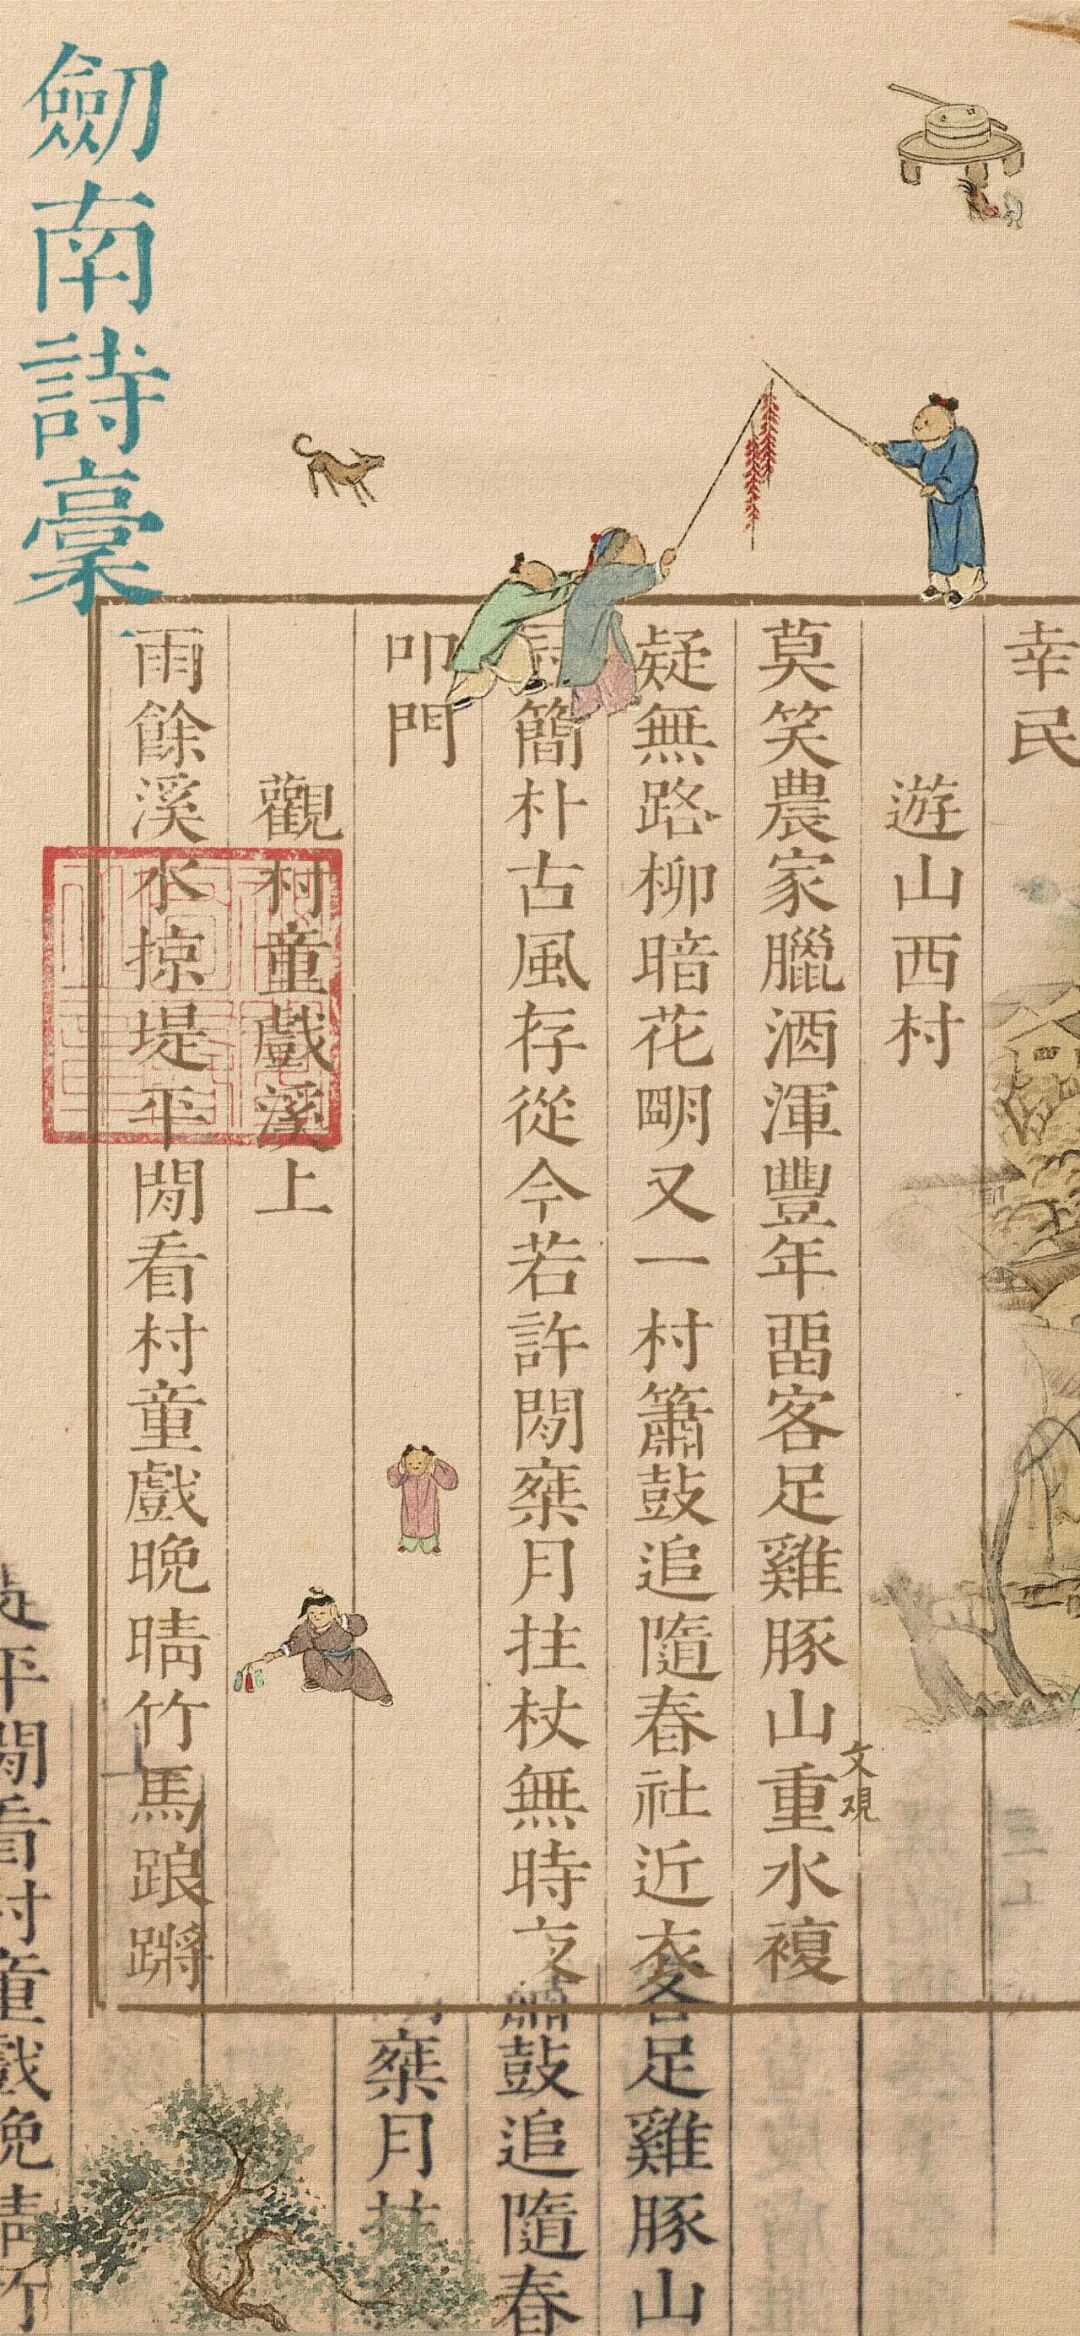 劒南詩稾
幸民
遊山西村
莫笑農家臘酒渾豐年畱客足雞豚山重水複
疑無路柳暗花朙又一村簫鼓追隨春社近衣
冠簡朴古風存從今若許閒椉月拄杖無時夜
叩門
觀村童戲溪上
雨餘溪水掠堤平閒看村童戲晚晴竹馬踉蹡
文硯
客足雞豚山
鼓追隨春
椉月拄
平閒看村童戲晚晴竹